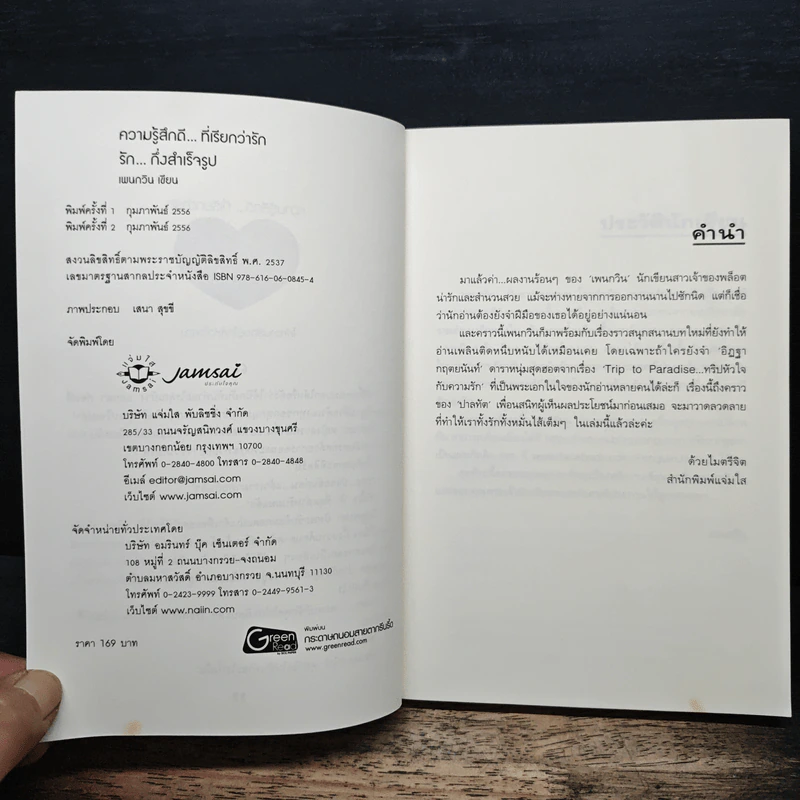 ความรู้สึกดี... ที่เรียกว่ารัก
รัก... กึ่งสำเร็จรูป
เพนกวิน เขียน
พิมพ์ครั้งที่ 1 กุมภาพันธ์ 2556
พิมพ์ครั้งที่ 2 กุมภาพันธ์ 2556
สงวนลิขสิทธิ์ตามพระราชบัญญัติลิขสิทธิ์ พ.ศ. 2537
เลขมาตรฐานสากลประจำหนังสือ ISBN 978-616-06-0845-4
ภาพประกอบ เสนา สุขขี
จัดพิมพ์โดย
แจ่มใส
Jamsai
Jamsai
ประทับใจคุณ
บริษัท แจ่มใส พับลิชชิ่ง จำกัด
285/33 ถนนจรัญสนิทวงศ์ แขวงบางขุนศรี
เขตบางกอกน้อย กรุงเทพฯ 10700
โทรศัพท์ 0-2840-4800 โทรสาร 0-2840-4848
อีเมล์ editor@jamsai.com
เว็บไซต์ www.jamsai.com
จัดจำหน่ายทั่วประเทศโดย
บริษัท อมรินทร์ บุ๊ค เซ็นเตอร์ จำกัด
108 หมู่ที่ 2 ถนนบางกรวย-จงถนอม
ตำบลมหาสวัสดิ์ อำเภอบางกรวย จ.นนทบุรี 11130
โทรศัพท์ 0-2423-9999 โทรสาร 0-2449-9561-3
เว็บไซต์ www.naiin.com
ราคา 169 บาท
Green Read
พิมพ์บน
กระดาษถนอมสายตากรีนรี้ด
www.greenread.com
คำนำ
มาแล้วค่า...ผลงานร้อนๆ ของ 'เพนกวิน' นักเขียนสาวเจ้าของพล็อต
น่ารักและสำนวนสวย แม้จะห่างหายจากการออกงานนานไปซักนิด แต่ก็เชื่อ
ว่านักอ่านต้องยังจำฝีมือของเธอได้อยู่อย่างแน่นอน
และคราวนี้เพนกวินก็มาพร้อมกับเรื่องราวสนุกสนานบทใหม่ที่ยังทำให้
อ่านเพลินติดหนึบหนับได้เหมือนเคย โดยเฉพาะถ้าใครยังจำ 'อิฎฐา
กฤตยนันท์' ดาราหนุ่มสุดฮอตจากเรื่อง 'Trip to Paradise...ทริปหัวใจ
กับความรัก' ที่เป็นพระเอกในใจของนักอ่านหลายคนได้ล่ะก็ เรื่องนี้ถึงคราว
ของ 'ปาลทัต' เพื่อนสนิทผู้เห็นผลประโยชน์มาก่อนเสมอ จะมาวาดลวดลาย
ที่ทำให้เราทั้งรักทั้งหมั่นไส้เต็มๆ ในเล่มนี้แล้วล่ะค่ะ
ด้วยไมตรีจิต
สำนักพิมพ์แจ่มใส